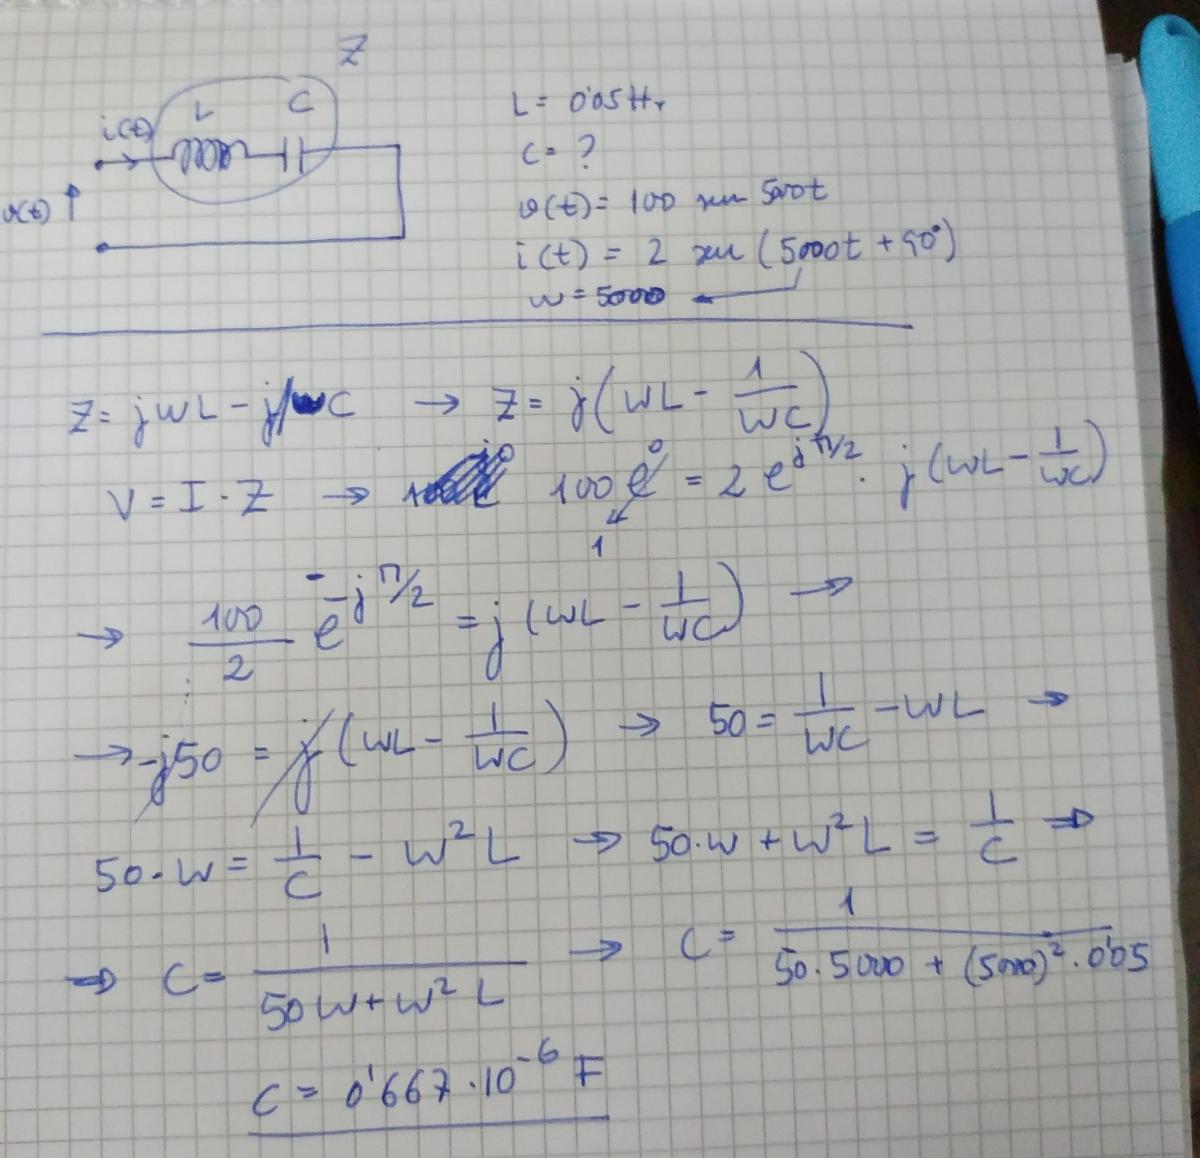 Z
L C
i(t)
v(t)
L = 0'05 Hr
C = ?
v(t) = 100 sen 5000t
i(t) = 2 sen (5000t + 90°)
w = 5000
Z = jwL - j/wC → Z = j(wL - 1/wC)
V = I · Z → 100 e^0 = 2 e^{jπ/2} · j(wL - 1/wC)
1
→ 100/2 e^{-jπ/2} = j(wL - 1/wC) →
→ -j50 = j(wL - 1/wC) → 50 = 1/wC - wL →
50 · w = 1/C - w²L → 50·w + w²L = 1/C ⇒
⇒ C = 1/(50w + w²L) → C = 1/(50·5000 + (5000)²·0'05)
C = 0'667 · 10^-6 F